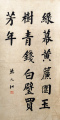 綠幕黃簾圍玉
樹青錢白璧買
芳年